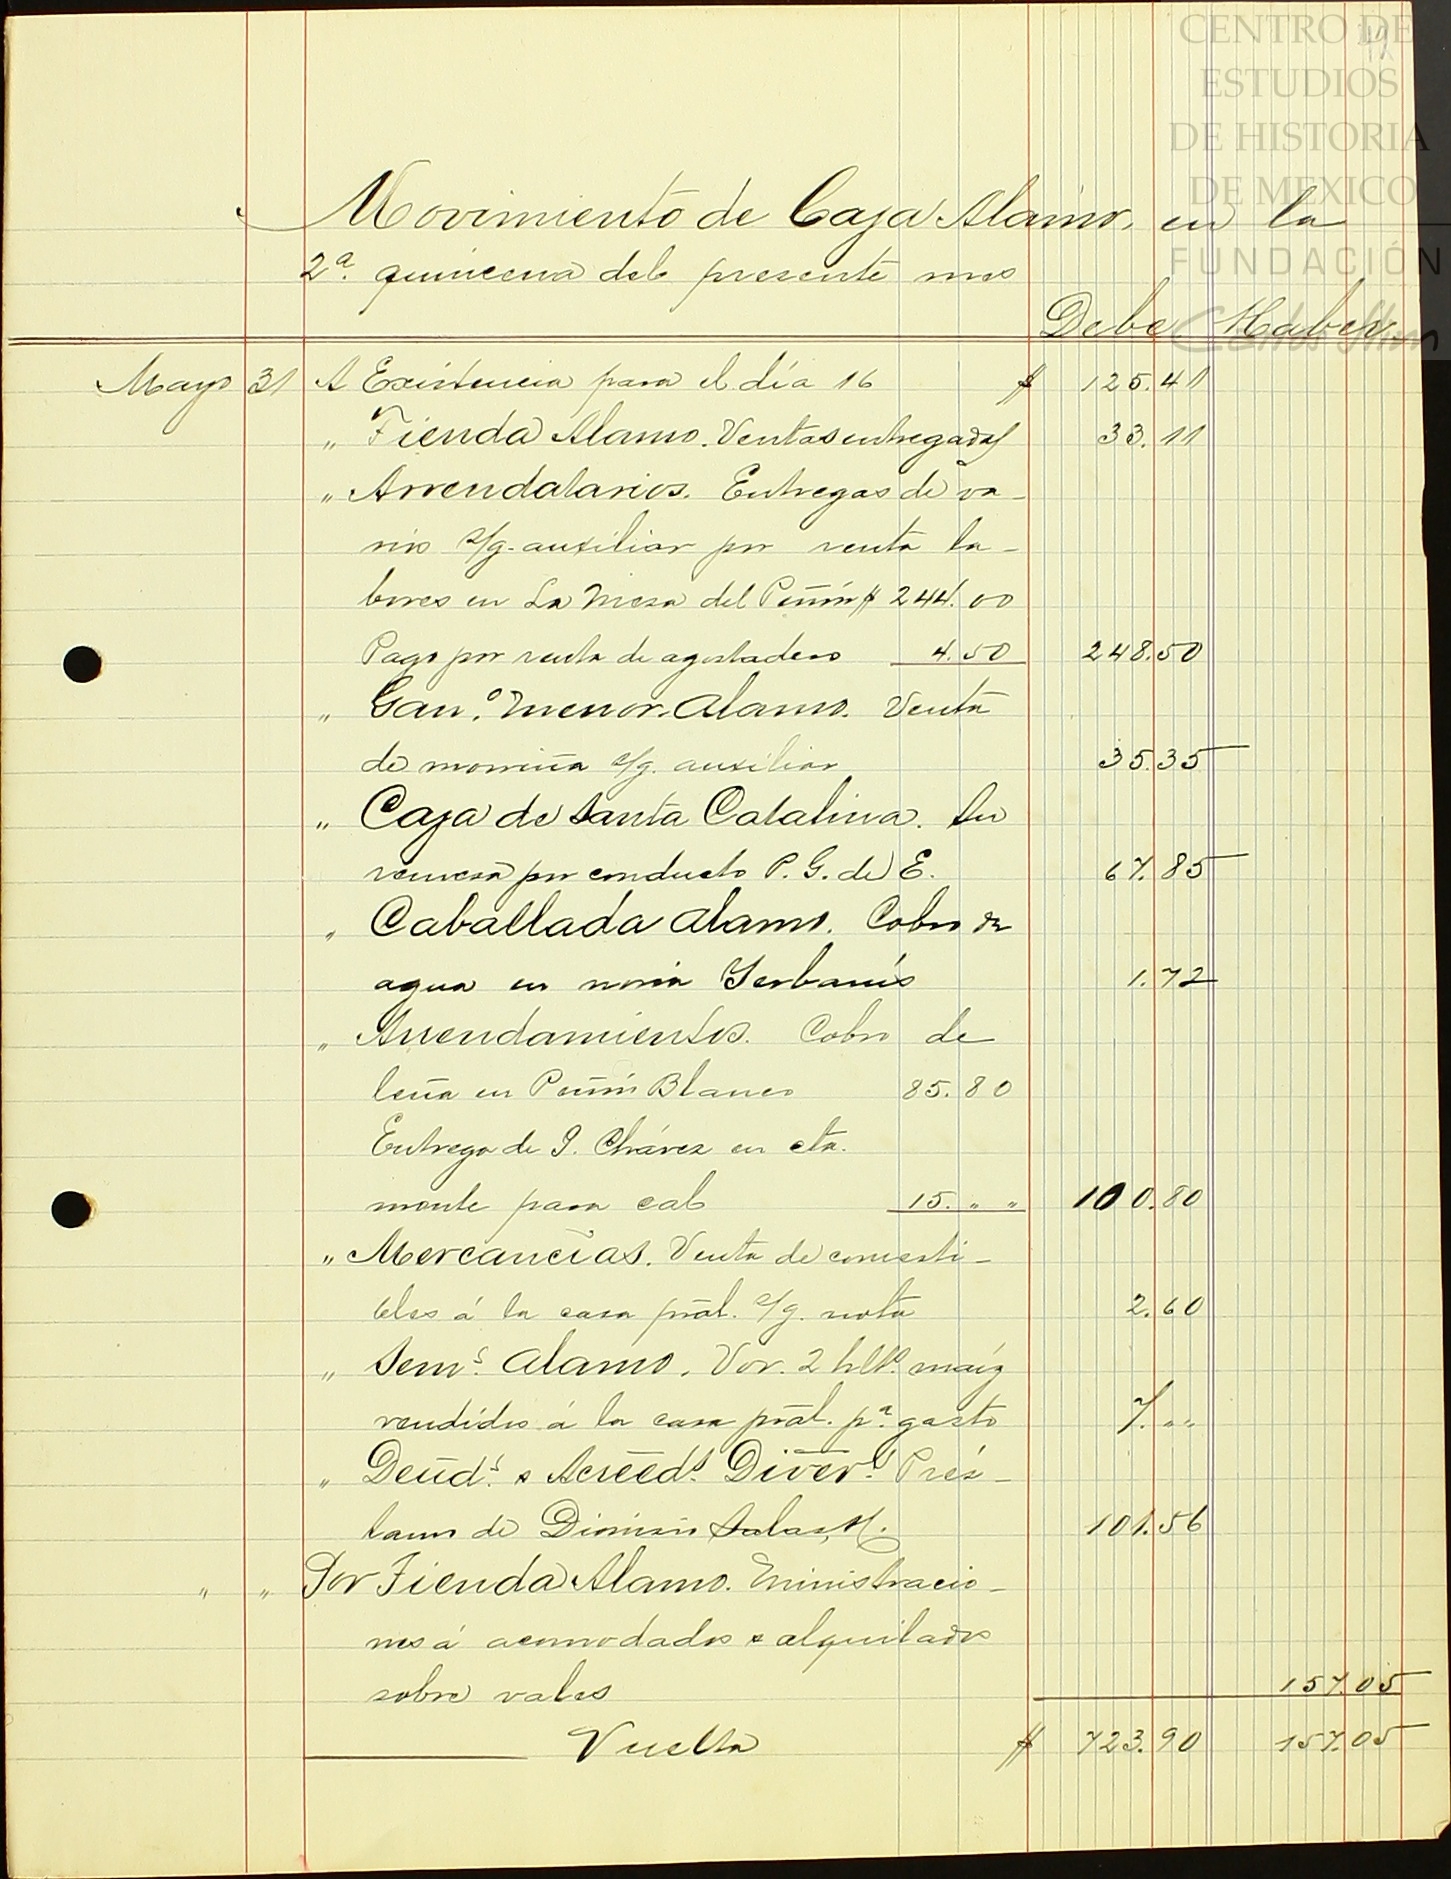 CENTRO DE
ESTUDIOS
DE HISTORIA
DE MEXICO
FUNDACIÓN
Carlos Slim
Movimiento de Caja Alamo, en la
2ª. quincena del presente mes
Debe Haber
Mayo 31 A Existencia para el día 16 $ 125.41
" Tienda Alamo. Ventas entregadas 33.11
" Arrendatarios. Entregas de va-
rios s/g. auxiliar por renta la-
bores en La Mesa del Peñón $ 244.00
Pago por renta de agostadero 4.50 248.50
" Ganº. menor. Alamo. Venta
de morriña s/g. auxiliar 35.35
" Caja de Santa Catalina. Su
remesa por conducto P. G. de E. 67.85
" Caballada Alamo. Cobro de
agua en noria Yerbanís 1.72
" Arrendamientos. Cobro de
leña en Peñón Blanco 85.80
Entrega de I. Chávez en cta.
monte para cal 15. " " 100.80
" Mercancías. Venta de comesti-
bles á la casa pral. s/g. nota 2.60
" Sems. Alamo. Vor. 2 hlts. maíz
vendidos á la casa pral. pª. gasto 7. " "
" Deuds. & Acreeds. Divers. Prés-
tamo de Dionisio Salas, M. 101.56
" " Por Tienda Alamo. Ministracio-
nes á acomodados & alquilados
sobre vales 157.05
Vuelta $ 723.90 157.05